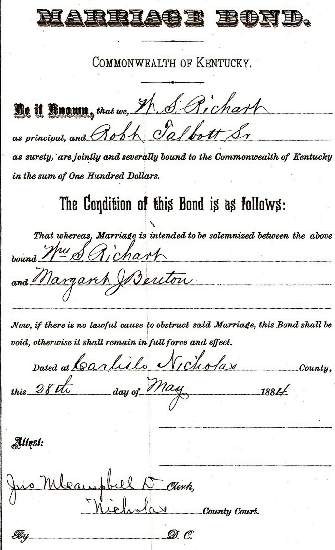 MARRIAGE BOND.
COMMONWEALTH OF KENTUCKY.
Be it Known, that we, W. S. Richart
as principal, and Robt Talbott Sr
as surety, are jointly and severally bound to the Commonwealth of Kentucky
in the sum of One Hundred Dollars.
The Condition of this Bond is as follows:
That whereas, Marriage is intended to be solemnized between the above
bound Wm S Richart
and Margaret J Benton
Now, if there is no lawful cause to obstruct said Marriage, this Bond shall be
void, otherwise it shall remain in full force and effect.
Dated at Carlisle Nicholas County,
this 28th day of May 1884
Attest:
Jno M Campbell Clerk,
Nicholas County Court.
By D. C.